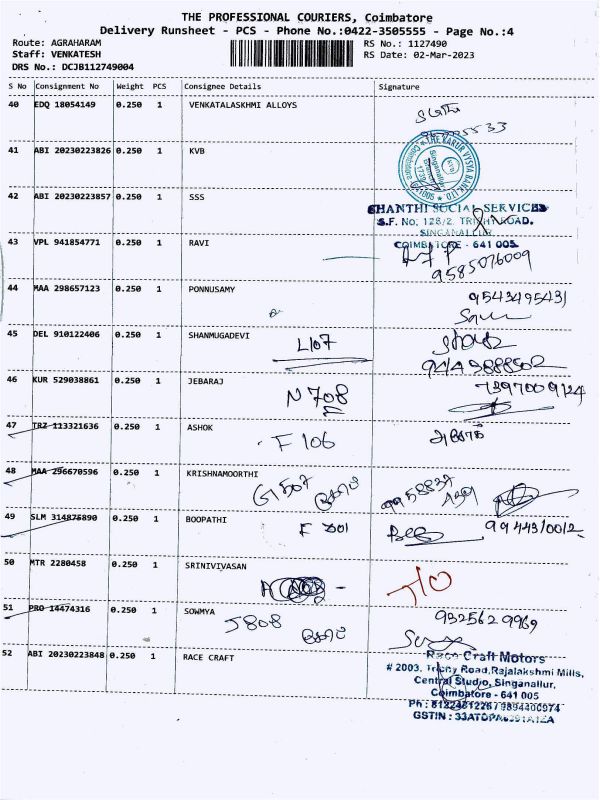 THE PROFESSIONAL COURIERS, Coimbatore
Delivery Runsheet - PCS - Phone No.:0422-3505555 - Page No.:4
Route: AGRAHARAM
RS No.: 1127490
Staff: VENKATESH
RS Date: 02-Mar-2023
DRS No.: DCJB112749004
S No Consignment No Weight PCS Consignee Details Signature
40 EDQ 18054149 0.250 1 VENKATALASKHMI ALLOYS
41 ABI 20230223826 0.250 1 KVB
THE KARUR VYSYA BANK LTD.
42 ABI 20230223857 0.250 1 SSS
SHANTHI SOCIAL SERVICES
S.F. No. 128/2, TRICHY ROAD,
SINGANALLUR,
COIMBATORE - 641 005
43 VPL 941854771 0.250 1 RAVI
9585076009
44 MAA 298657123 0.250 1 PONNUSAMY
9543495431
45 DEL 910122406 0.250 1 SHANMUGADEVI L107
46 KUR 529038861 0.250 1 JEBARAJ N 708
47 TRZ 113321636 0.250 1 ASHOK F 106 அசோக்
48 MAA 296670596 0.250 1 KRISHNAMOORTHI G507
49 SLM 314875890 0.250 1 BOOPATHI
50 MTR 2280458 0.250 1 SRINIVIVASAN
51 PRO 14474316 0.250 1 SOWMYA J808
9325629969
52 ABI 20230223848 0.250 1 RACE CRAFT
Race Craft Motors
# 2003, Trichy Road, Rajalakshmi Mills,
Central Studio, Singanallur,
Coimbatore - 641 005